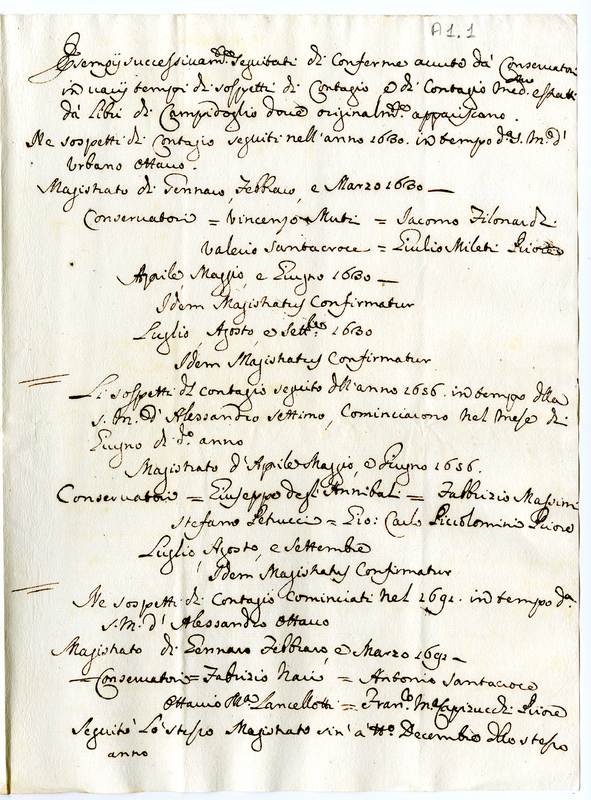 A1.1
Esempij successivam.te seguitati di Conferme avute da' Conservatori
in varij tempi di sospetti di Contagio e di Contagio med.mo estratti
da' Libri di Campidoglio dove originalm.te appariscano.
Ne sospetti di Contagio seguiti nell'anno 1630. in tempo d.a S. M. d'
Urbano Ottavo.
Magistrato di Gennaio, Febbraio, e Marzo 1630 —
Conservatori = Vincenzo Muti = Iacomo Filonardi
Valerio Santacroce = Giulio Mileti Priore
Aprile, Maggio, e Giugno 1630 —
Idem Magistratus Confirmatur
Luglio, Agosto, e Sett.bre 1630
Idem Magistratus Confirmatur
Li sospetti di Contagio seguito dell'anno 1656. in tempo della
S. M. d'Alessandro Settimo, Cominciarono nel mese di
Giugno di d.o anno
Magistrato d'Aprile Maggio, e Giugno 1656.
Conservatori = Giuseppe degl'Annibali = Fabbrizio Massimi
Stefano Petrucci = Gio: Carlo Piccolominio Priore
Luglio, Agosto, e Settembre
Idem Magistratus Confirmatur
Ne sospetti di Contagio Cominciati nel 1691. in tempo d.a
S. M. d'Alessandro Ottavo
Magistrato di Gennaro Febbraio, e Marzo 1691 —
Conservatori = Fabrizio Navi = Antonio Santacroce
Ottavio M.a Lancellotti = Fran.co M.a Capizucchi Priore
Seguitò Lo stesso Magistrato sin' a Decembre dello stesso
anno